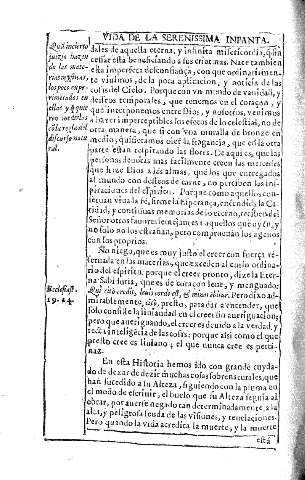 VIDA DE LA SERENISSIMA INFANTA.
Quã incierto
juizio hazen
de las mate-
rias
los poco expe-
rimẽtados en
ellas y q̃ que
discurso natu-
ral.
dales de aquella eterna, y infinita misericordia, q̃ sin
cessar està beneficiando a sus criaturas. Nace tambien
esta imperfecta desconfiança, con que ordinariamen-
te viuimos, de la poca aplicacion, y noticia de las
cosas del Cielo. Porque con vn mundo de vanidad, y
desseos temporales, que tenemos en el coraçon, y
que interponemos entre Dios, y nosotros, venimos
a hazer imperceptibles los efetos de lo celestial, no de
otra manera, que si con vna muralla de bronce en
medio, quisiessemos oler la fragancia, que està
estan respirando las flores. De aqui es, que las
personas deuotas mas facilmente creen las mercedes
que haze Dios a las almas, que los que entregados
al mundo con desseos de carne, no perciben las ins-
piraciones del espiritu. Porque como aquellos con-
seruan viua la fè, firme la esperança, encendida la Ca-
ridad, y continuas memorias de lo eterno, reciben del
Señor otros fauores semejantes a aquellos que oyen, y
no solo no los estrañan, pero comprueuan los agenos
con los proprios.
No niego, que es muy justo el creer con fuerça
en las materias, que exceden al estilo ordina-
rio del espiritu, porque el creer pronto, dize la Eter-
na Sabiduria, que es de coraçon leue, y menguado:
Ecclesiast.
19. 14.
Qui citò credit, leuis corde est, & minorabitur. Pero dixo ad-
mirablemente, citò, presto, para dar a entender, que
solo consiste la liuiandad en el creer sin aueriguacion;
pero que aueriguando, el creer es deuido a la verdad, y
a la inteligencia de las cosas: porque assi como el que
presto cree es liuiano; el que nunca cree es perti-
naz.
En esta Historia hemos ido con grande cuyda-
do de dexar de dezir muchas cosas sobrenaturales, que
han sucedido a su Alteza, siguiendo con la pluma en
el modo de escriuir, el buelo que su Alteza seguia al
obrar, por auerse negado tan determinadamente, a la
alta, y peligrosa senda de las visiones, y reuelaciones.
Pero quando la vida acredita la muerte, y la muerte
està